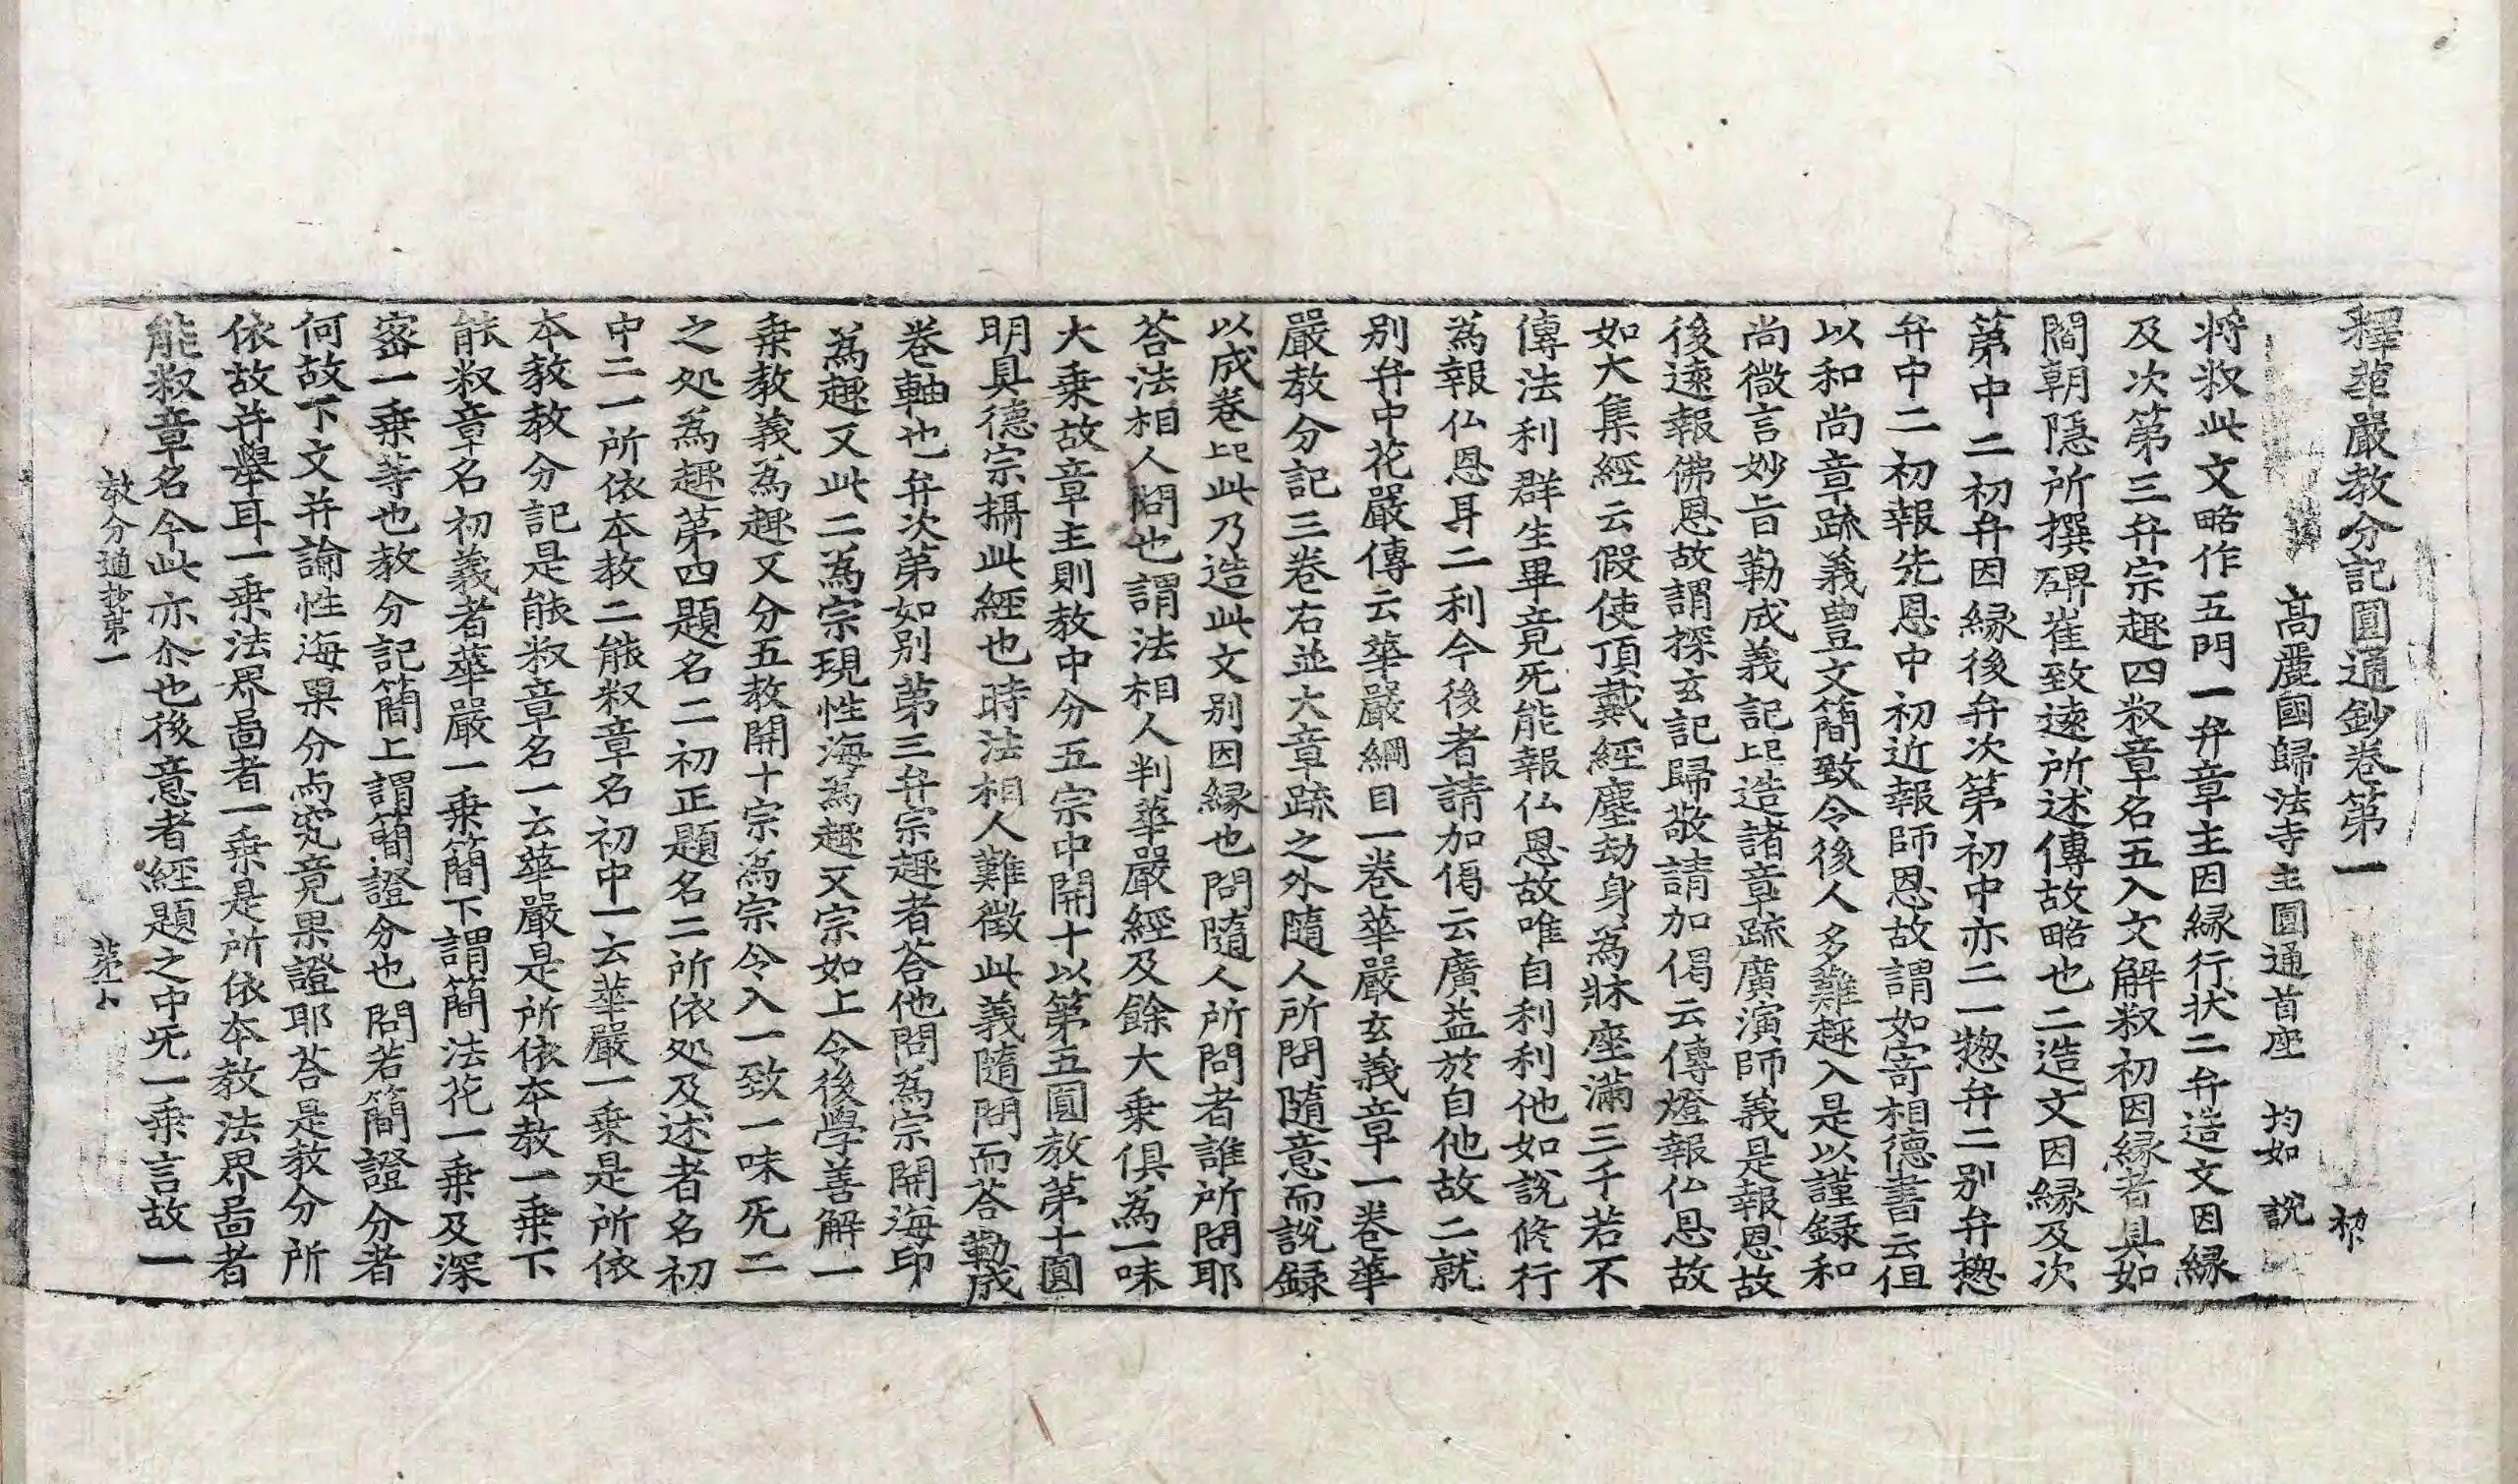 釋華嚴教分記圓通鈔卷第一
高麗國歸法寺主圓通首座 均如 說
将㪅此文略作五門一弁章主因縁行状二弁造文因縁
及次第三弁宗趣四㪅章名五入文解㪅初因縁者具如
閻朝隱所撰碑崔致遠所述傳故略也二造文因縁及次
第中二初弁因縁後弁次第初中亦二一惣弁二別弁惣
弁中二初報先恩中初近報師恩故謂如寄相德書云伹
以和尚章䟽義豊文簡致令後人多難趣入是以謹録和
尚微言妙旨勒成義記比造諸章䟽廣演師義是報恩故
後遠報佛恩故謂探玄記歸敬請加偈云傳燈報仏恩故
如大集經云假使頂戴經塵劫身為牀座滿三千若不
傳法利群生畢竟无能報仏恩故唯自利利他如說修行
為報仏恩耳二利今後者請加偈云廣益於自他故二就
別弁中花嚴傳云華嚴綱目一卷華嚴玄義章一卷華
嚴教分記三卷右並大章䟽之外隨人所問隨意而說録
以成卷比此乃造此文別因縁也問隨人所問者誰所問耶
荅法相人問也謂法相人判華嚴經及餘大乗俱為一味
大乗故章主則教中分五宗中開十以第五圓教第十圓
明具德宗攝此經也時法相人難徵此義隨問而荅勒成
卷軸也弁次第如別第三弁宗趣者荅他問為宗開海印
為趣又此二為宗現性海為趣又宗如上令後學善解一
乗教義為趣又分五教開十宗為宗令入一致一味无二
之処為趣第四題名二初正題名二所依処及述者名初
中二一所依本教二能㪅章名初中一云華嚴一乗是所依
本教教分記是能㪅章名一云華嚴是所依本教一乗下
能㪅章名初義者華嚴一乗簡下謂簡法花一乗及深
密一乗等也教分記簡上謂簡證分也問若簡證分者
何故下文弁論性海果分尚究竟果證耶荅是教分所
依故弁舉耳一乗法界啚者一乗是所依本教法界啚者
能㪅章名今此亦尒也後意者經題之中旡一乗言故一
教分通抄第一